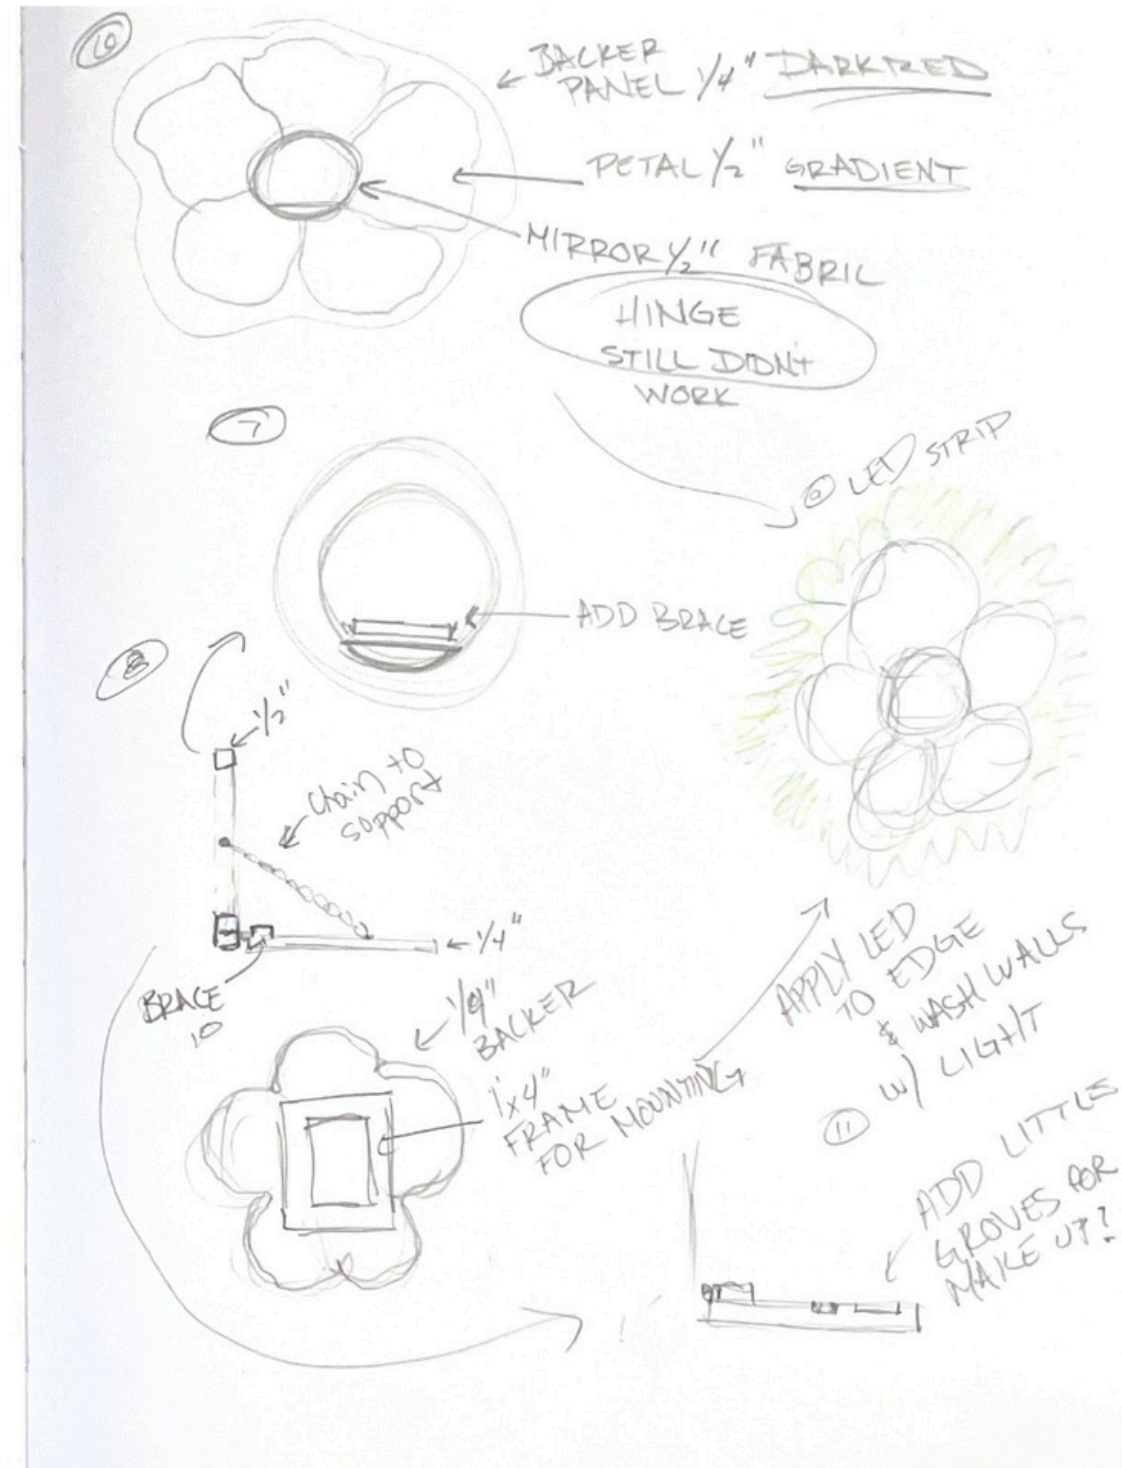 10
BACKER
PANEL 1/4" DARK RED
PETAL 1/2" GRADIENT
MIRROR 1/2" FABRIC
HINGE
STILL DIDN't
WORK
7
LED STRIP
ADD BRACE
8
1/2"
Chain to
support
1/4"
BRACE
10
BACKER
1x4"
FRAME
FOR MOUNTING
APPLY LED
TO EDGE
& WASH WALLS
w/ LIGHT
11
ADD LITTLE
GROVES FOR
MAKE UP?